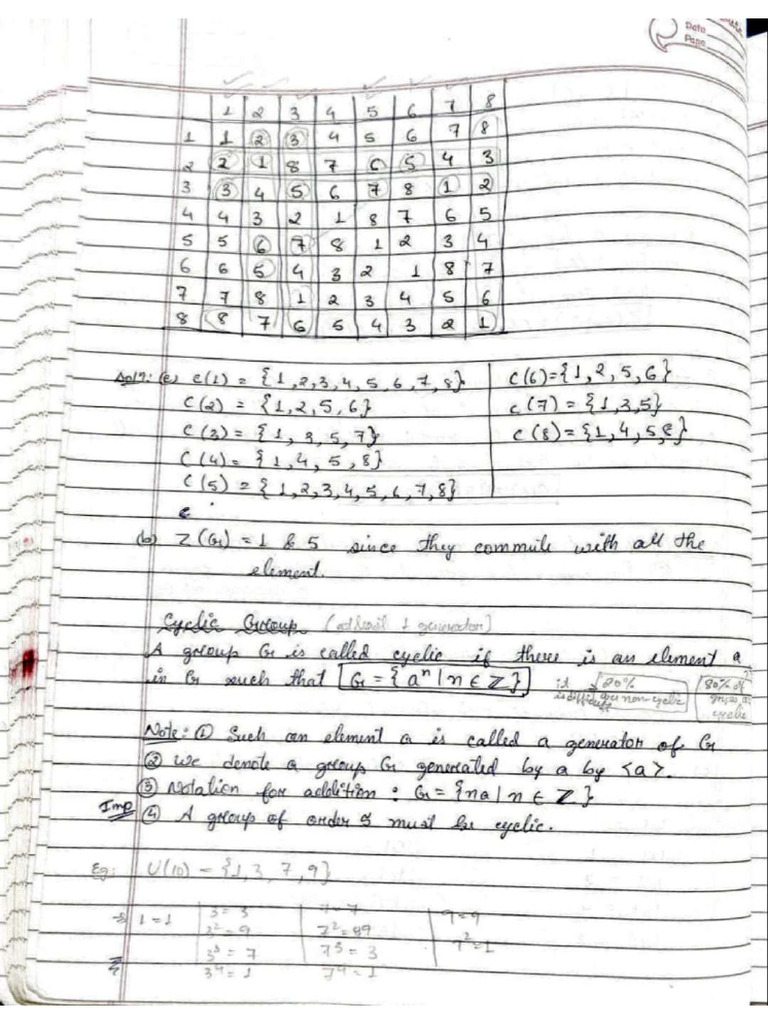 Date
Page
1 2 3 4 5 6 7 8
1 1 2 3 4 5 6 7 8
2 2 1 8 7 6 5 4 3
3 3 4 5 6 7 8 1 2
4 4 3 2 1 8 7 6 5
5 5 6 7 8 1 2 3 4
6 6 5 4 3 2 1 8 7
7 7 8 1 2 3 4 5 6
8 8 7 6 5 4 3 2 1
Soln: (a) C(1) = {1,2,3,4,5,6,7,8}
C(2) = {1,2,5,6}
C(3) = {1,3,5,7}
C(4) = {1,4,5,8}
C(5) = {1,2,3,4,5,6,7,8}
C(6) = {1,2,5,6}
C(7) = {1,3,5}
C(8) = {1,4,5,8}
(b) Z(G) = 1 & 5 since they commute with all the
element.
Cyclic Group (atleast 1 generator)
A group G is called cyclic if there is an element a
in G such that G = {aⁿ | n ∈ Z}
it 80% 80% of
is difficult non-cyclic
cyclic
Note: ① Such an element a is called a generator of G
② we denote a group G generated by a by <a>.
③ Notation for addition : G = {na | n ∈ Z}
Imp ④ A group of order must be cyclic.
Eg: U(10) = {1,3,7,9}
⇒ 1=1
3=3
3²=9
3³=7
3⁴=1
7=7
7²=89
7³=3
7⁴=1
9=9
9²=1